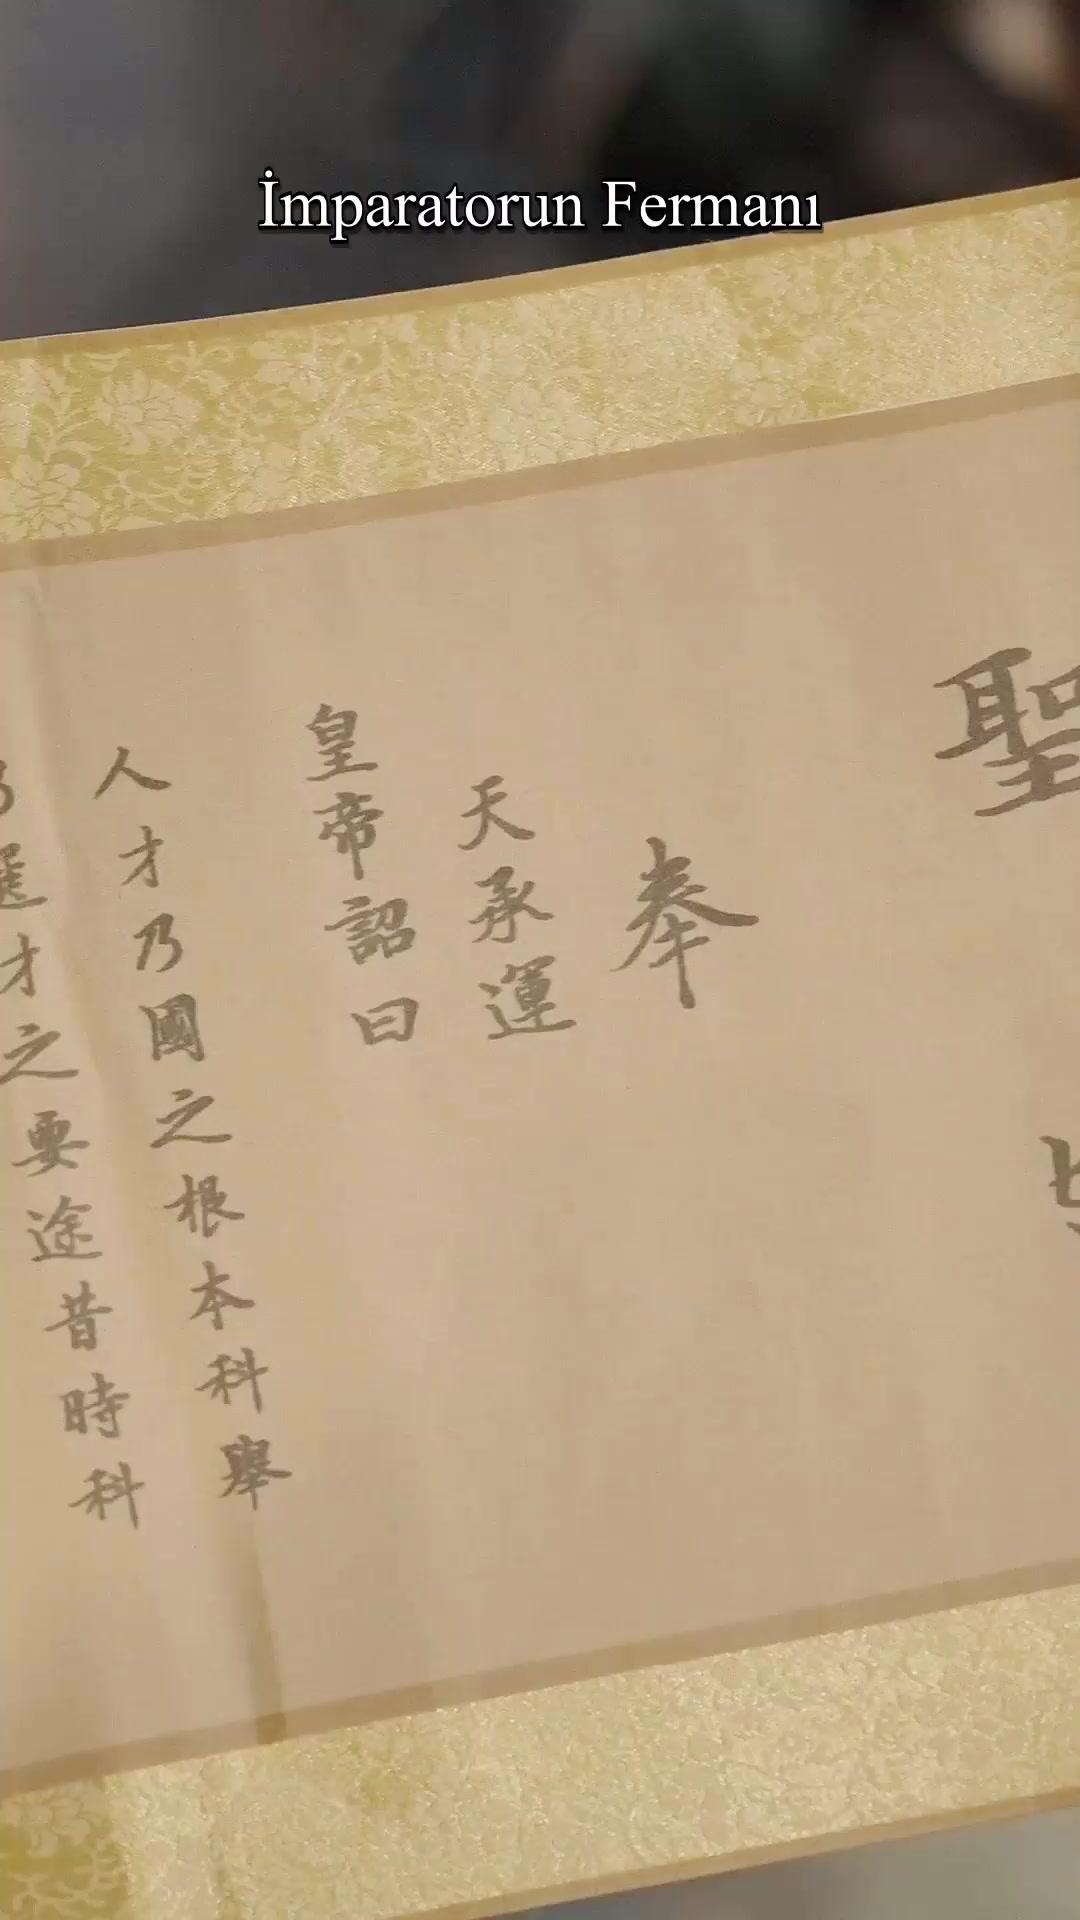 İmparatorun Fermanı
聖
奉
天承運
皇帝詔曰
人才乃國之根本科舉
乃選才之要途昔時科